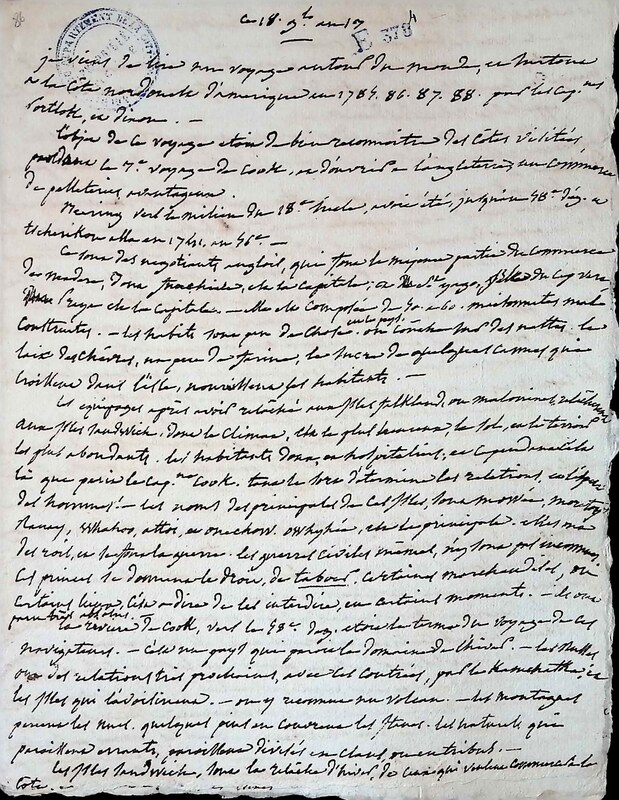 86
ce 18. 9bre an 13
E 378
je viens de lire un voyage autour du monde, et surtout
à la Côte nord ouest d'amérique en 1785. 86. 87. 88. par les Capnes
Portlok, et dixon. —
l'objet de ce voyage etoit de bien reconnoitre des Côtes visitées
pendant le 3e voyage de Cook, et d'ouvrir à l'angleterre, un Commerce
de pelleteries avantageux.
Beering vers le milieu du 18e siecle, avoit été, jusqu'au 58e deg. et
tscherikow alla en 1741, au 56e. —
Ce sont des négotiants anglois, qui font la majeure partie du Commerce
de madere, dont funchiale, est la Capitale; St yago, du Cap verd
praya est la Capitale. — elle est Composée de 50. a 60. maisonnettes mal
Construites. — les habits sont peu de Chose en ce pays. on Couche sur des nattes. le
lait des chèvres, un peu de farine, le sucre de quelques Cannes qui
Croissent dans l'isle, nourrissent ses habitants. —
les équipages après avoir relâché aux isles falkland, ou malouines, relâchèrent
aux isles sandwich, dont le climat, est le plus heureux, le sol, et le terroir
les plus abondants. les habitants doux, et hospitaliers; et Cependant c'est
là que périt le Capne Cook. tant le sort détermine les relations, et l'espece
des hommes! — les noms des principales de Ces isles, sont mowée, morotoy,
Ranay, Whahoo, attoi, et oneehow. owhyhée, est la principale. elles ont
des rois, et se font la guerre. les guerres Civiles mêmes, n'y sont pas inconnues,
Ces princes se donnent le droit, de tabous, certaines marchandises, ou
certains lieux, c'est a dire de les interdire, en certains moments. — ils ont
pouvoirs absolus.
la riviere de Cook, vers le 58e deg. etoit le terme du voyage de ces
navigateurs. — C'est un pays qui paroit le domaine de l'hiver. — les Russes
ont des relations très prochaines, avec ces Contrées, par le Kamchatka, et
les isles qui l'avoisinent. — on y reconnut un volcan. — les montagnes
percent les nues. quelques pins en couvrent les flancs. les naturels qui
paroissent errants, paroissent divisés en Clans, ou en tribus. —
les isles sandwich, sont la relâche d'hiver, de Ceux qui veulent commercer à la
Côte.